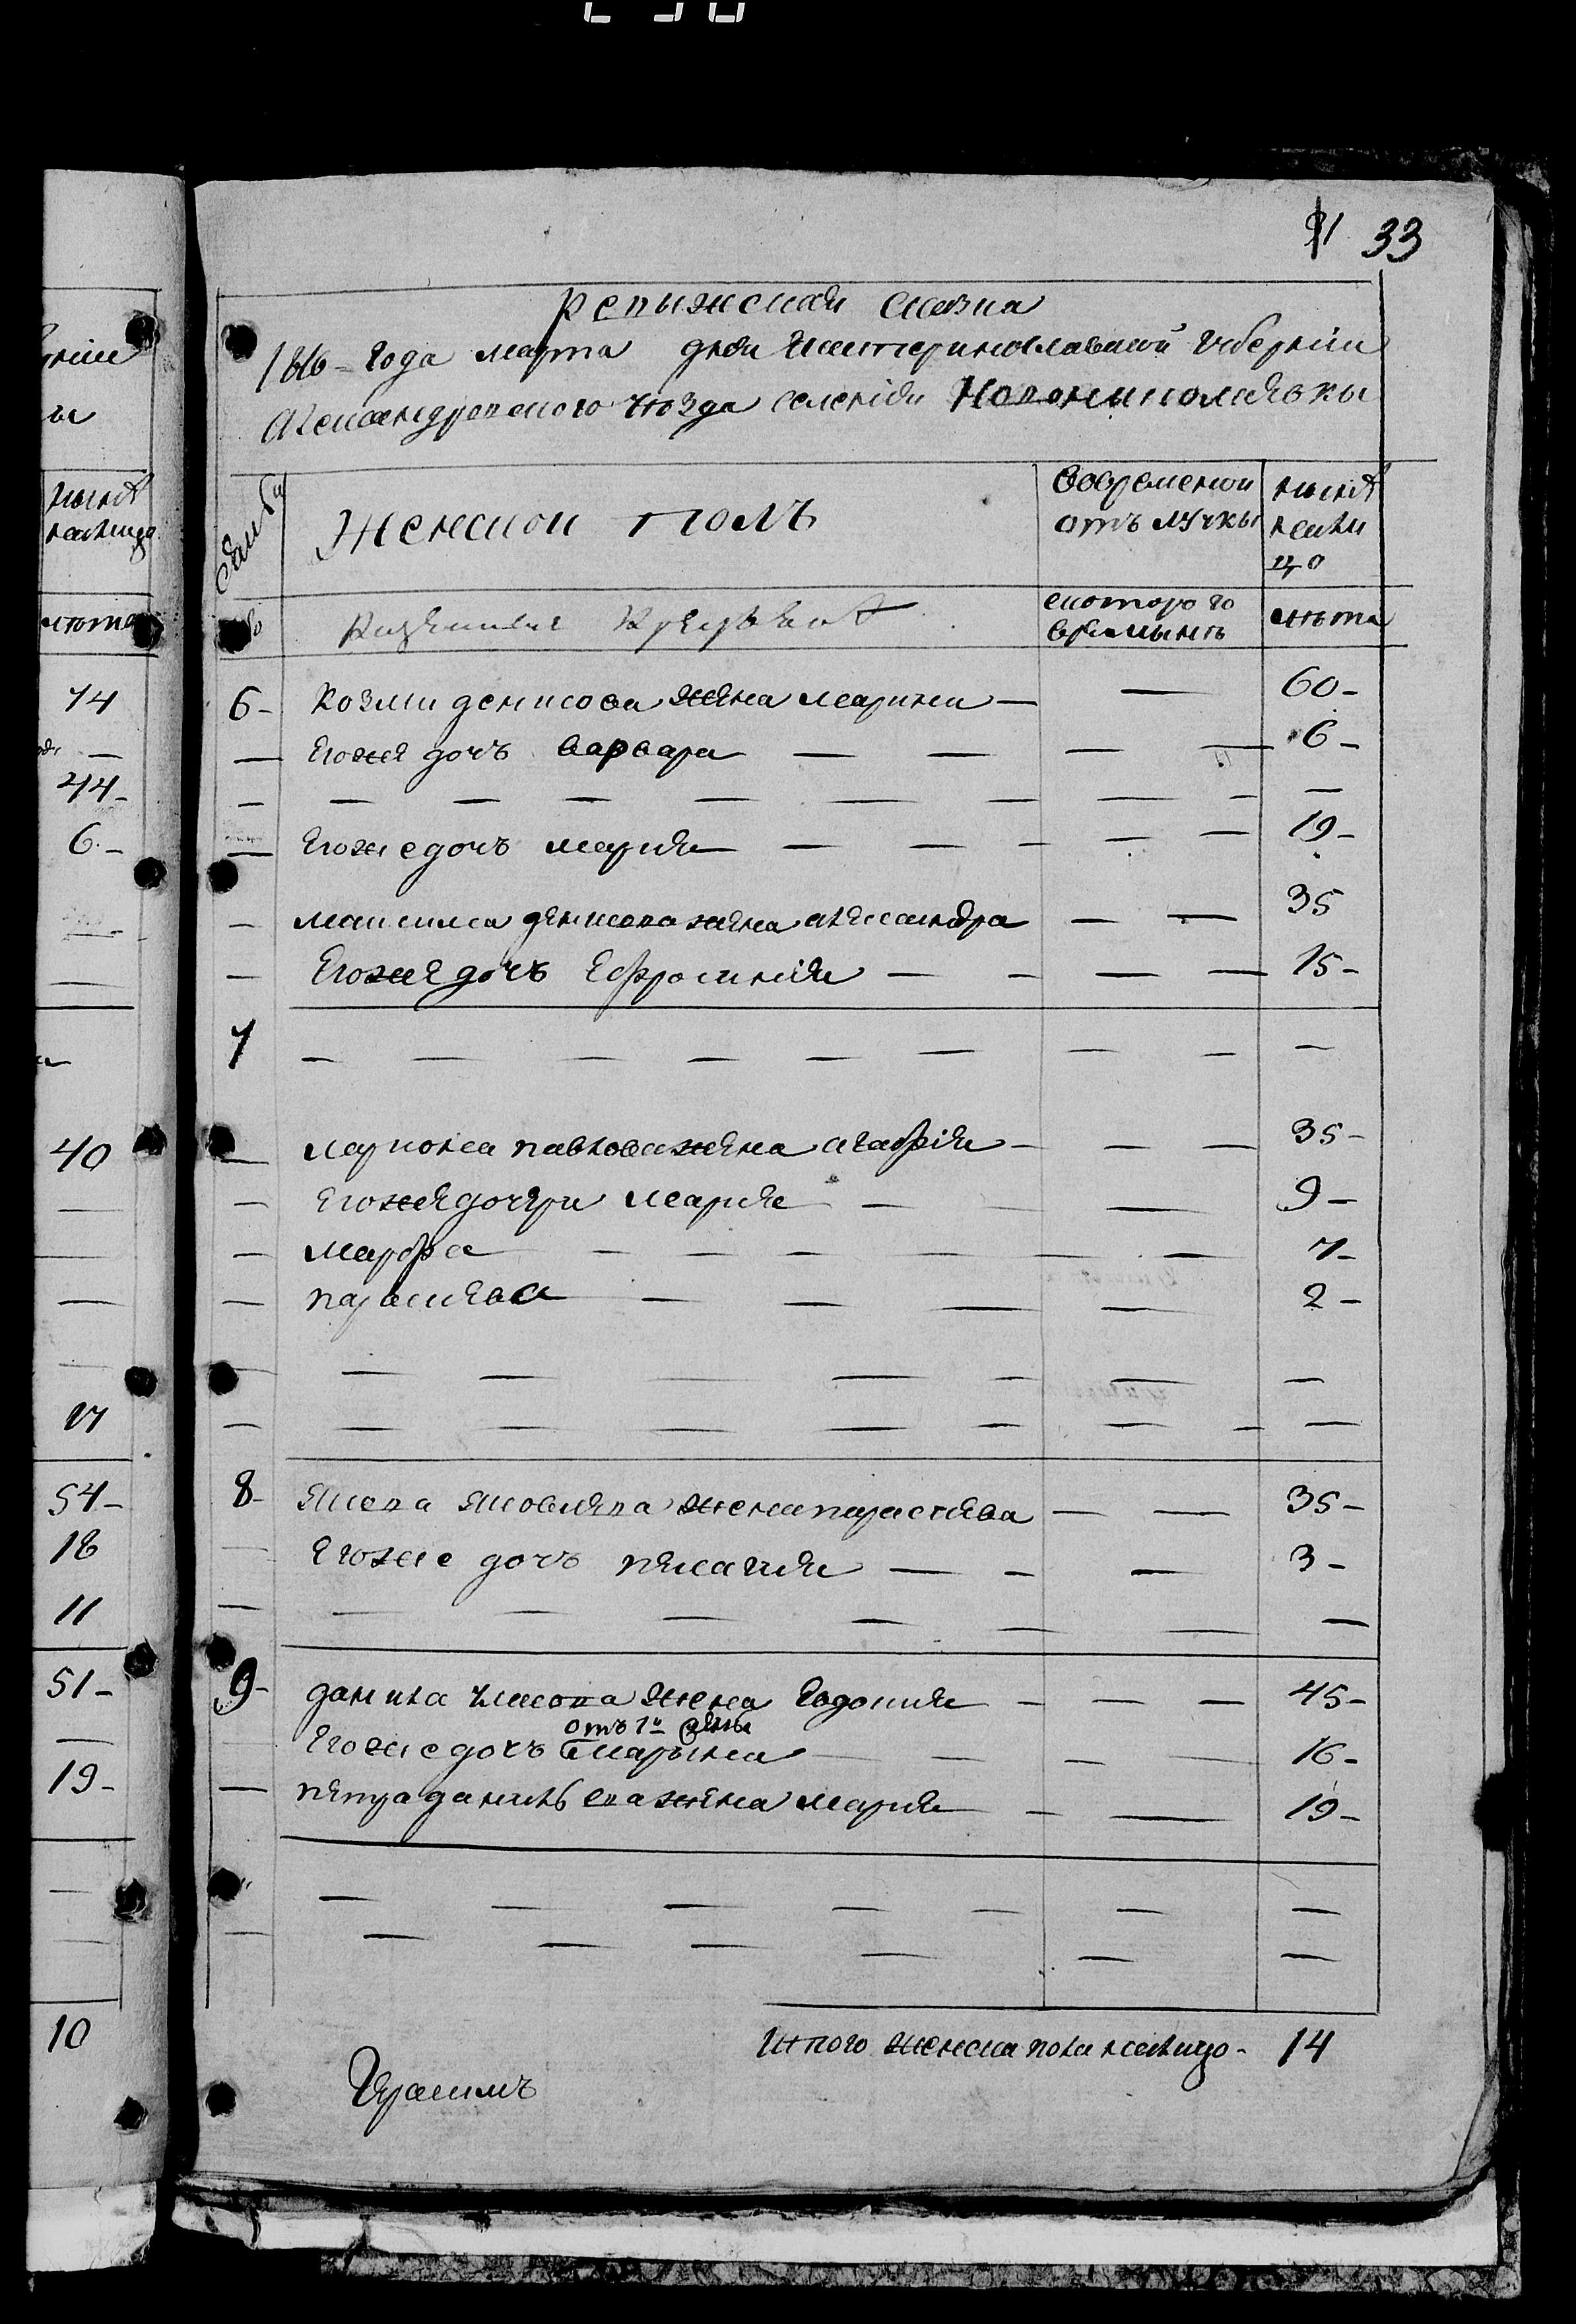 31 33
ревыжская сказка
1816 - года марта дня Екатеринославской губернiи
Александровского уѣзда селенiя Новониколаевки
Женской полъ
вовременои
отъ лучкы
нынѣ
нали
цо
скоторого
времынъ
лѣта
нынѣ
налицо
лѣта
6 - козми денисова жена марина — — 60 -
— Егоже дочъ варвара — — — — 6 -
— Егоже дочъ марiя — — — — 19 -
— максима денисова жена александра — — 35
— Егоже дочъ Ефросинiя — — — — 15 -
7 — — — — — — — — —
— лариона павлова жена агафiя — — — 35 -
— Егоже дочери марiя — — — 9 -
— марфа — — — — — — 7 -
— параскева — — — — — 2 -
8 - якова яковлева жена параскева — — 35 -
Егоже дочъ пелагiя — — — 3 -
9 - данила власова жена Евдокия — — — 45 -
отъ 1й жены
Егоже дочъ марына — — — — 16 -
— петра данилова жена марiя — — 19 -
Итого женска пола налицо - 14
74
44 -
6 -
40
17
54 -
18
11
51 -
19 -
10